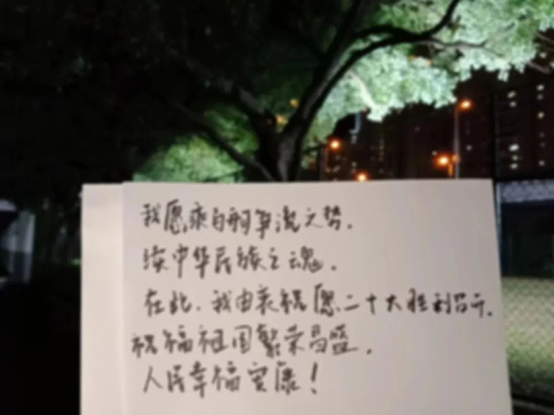 我愿乘百舸争流之势，
续中华民族之魂。
在此，我由衷祝愿二十大胜利召开，
祝福祖国繁荣昌盛，
人民幸福安康！